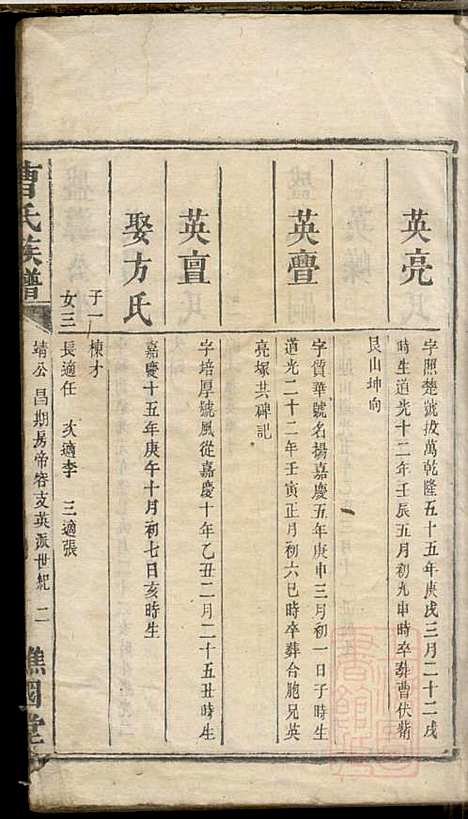 英亮
字照楚號拔萬乾隆五十五年庚戌三月二十二戌
時生道光十二年壬辰五月初九申時卒葬曹伏
艮山坤向
英亹
字質華號名揚嘉慶五年庚申三月初一日子時生
道光二十二年壬寅正月初六巳時卒葬合胞兄英
亮塚共碑記
英亶
字培厚號風從嘉慶十年乙丑二月二十五丑時生
娶方氏
嘉慶十五年庚午十月初七日亥時生
子一 棟才
女三 長適任 次適李 三適張
曹氏族譜
靖公昌期房帝容支英派世紀 二
譙國堂